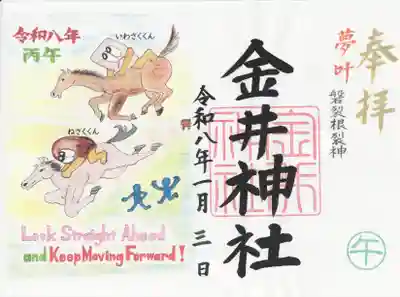 令和八年
丙午
いわさくくん
ねさくくん
Look Straight Ahead
and Keep Moving Forward!
奉拝
夢叶
磐裂根裂神
金井神社
令和八年一月三日
午